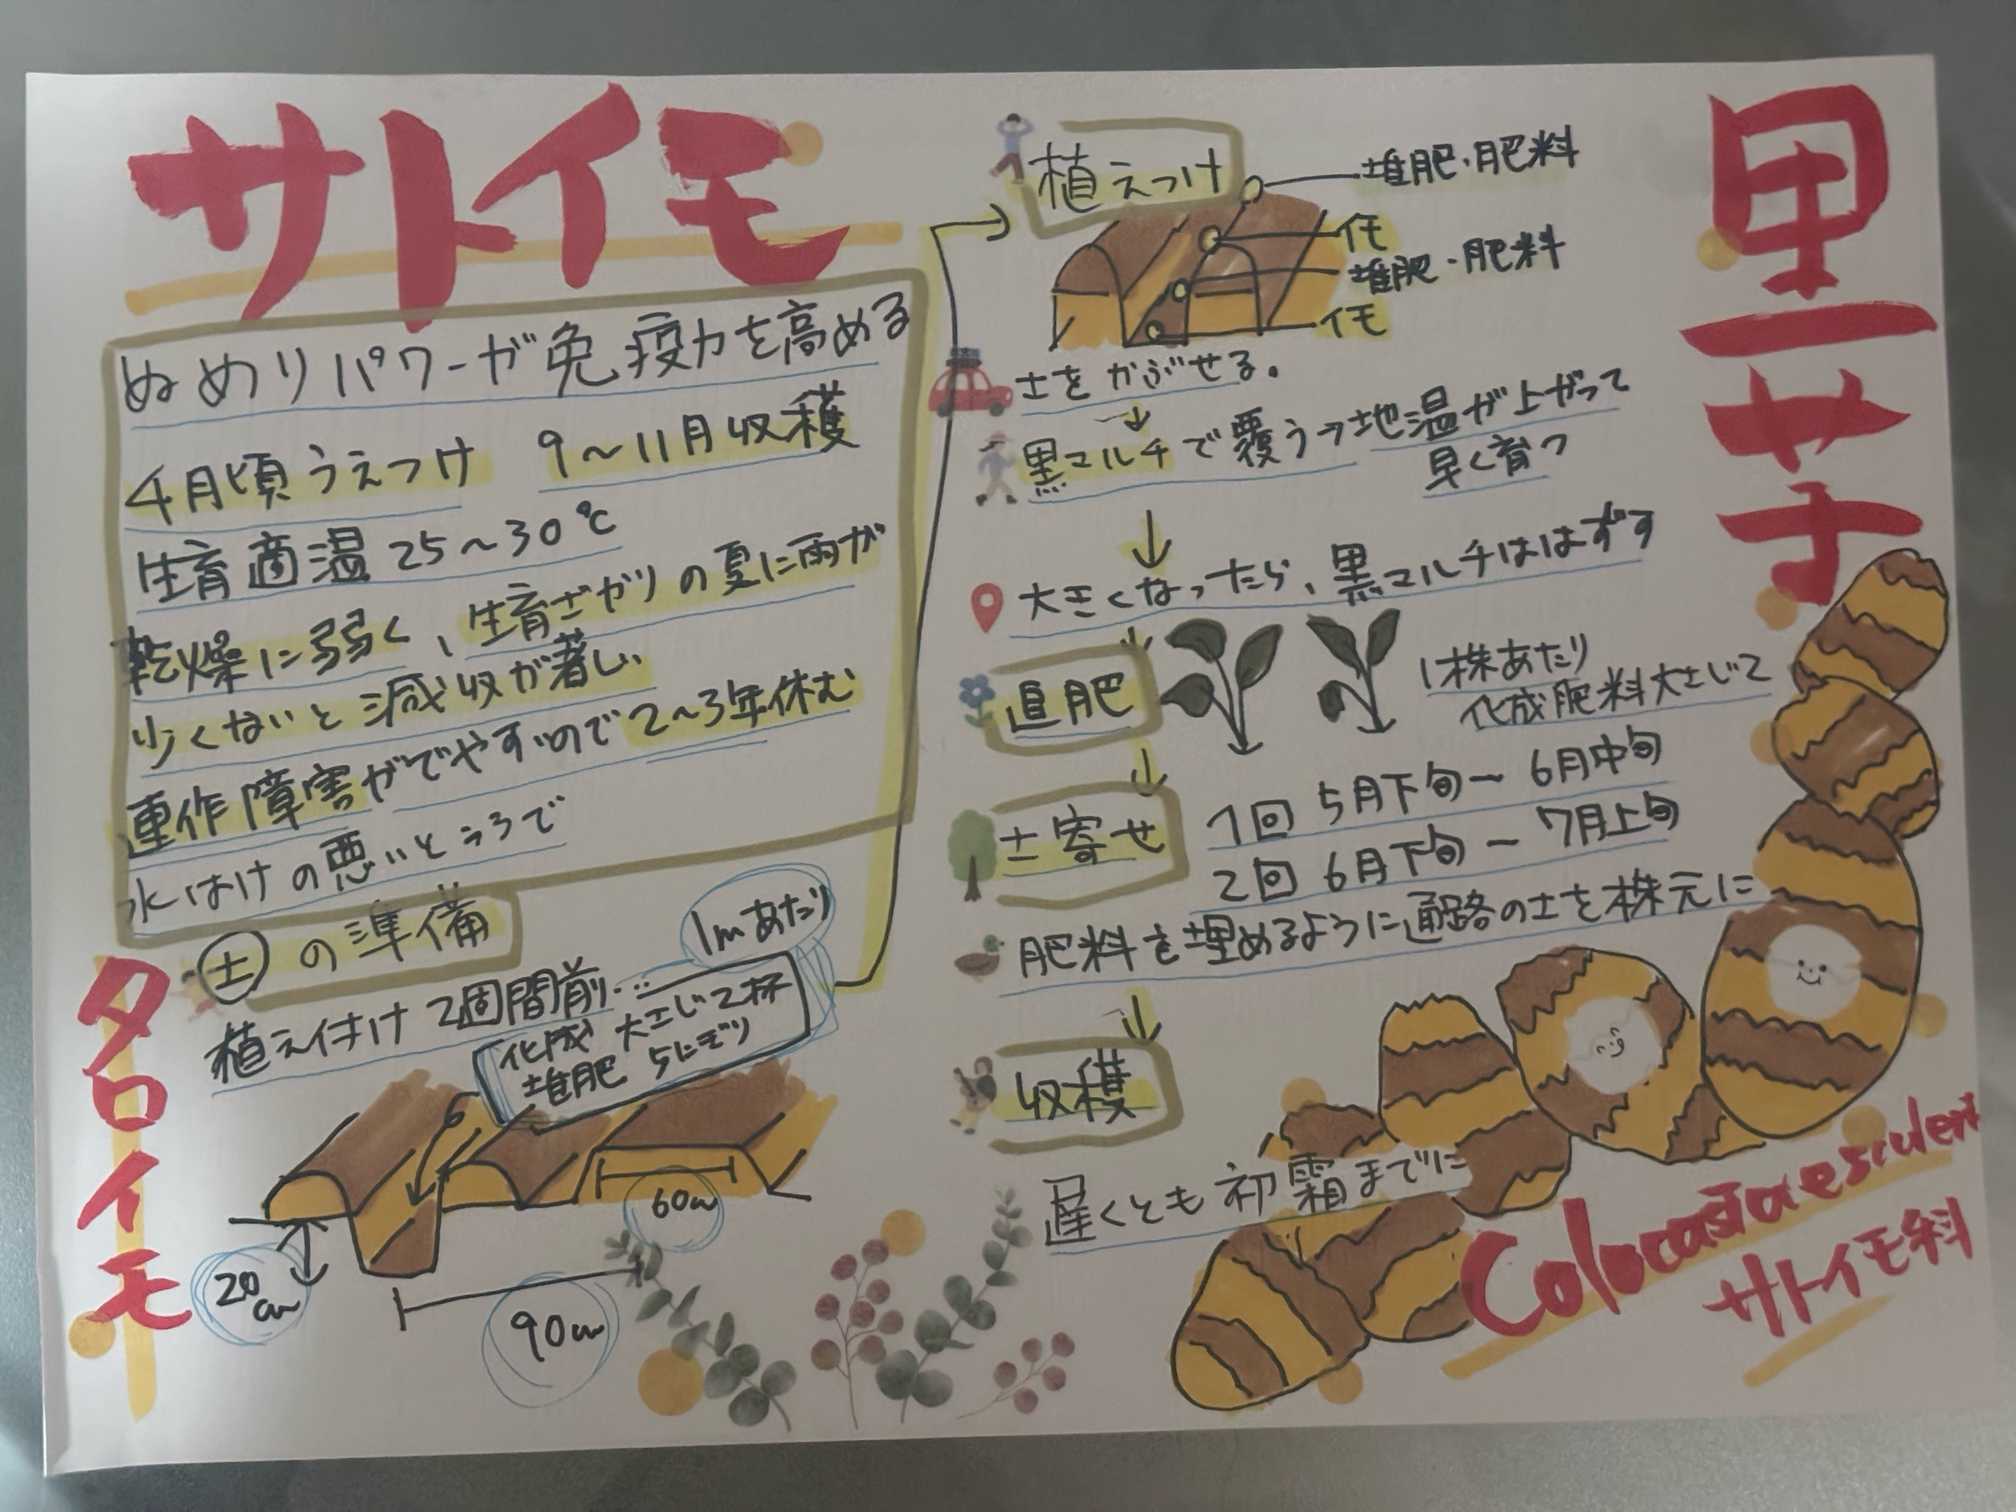 サトイモ
ぬめりパワーが免疫力を高める
4月頃うえつけ 9〜11月収穫
生育適温 25〜30℃
乾燥に弱く、生育ざかりの夏に雨が
少くないと減収が著しい
連作障害がでやすいので2〜3年休む
水はけの悪いところで
土の準備
植え付け2週間前
1mあたり
化成 大さじ2杯
堆肥 5にぎり
60cm
20cm
90cm
タロイモ
植えつけ
堆肥・肥料
イモ
堆肥・肥料
イモ
土をかぶせる。
黒マルチで覆う→地温が上がって
早く育つ
大きくなったら、黒マルチははずす
追肥
1株あたり
化成肥料大さじ2
土寄せ
1回 5月下旬ー6月中旬
2回 6月下旬ー7月上旬
肥料を埋めるように通路の土を株元に
収穫
遅くとも初霜までに
里芋
Colocasia esculent
サトイモ科